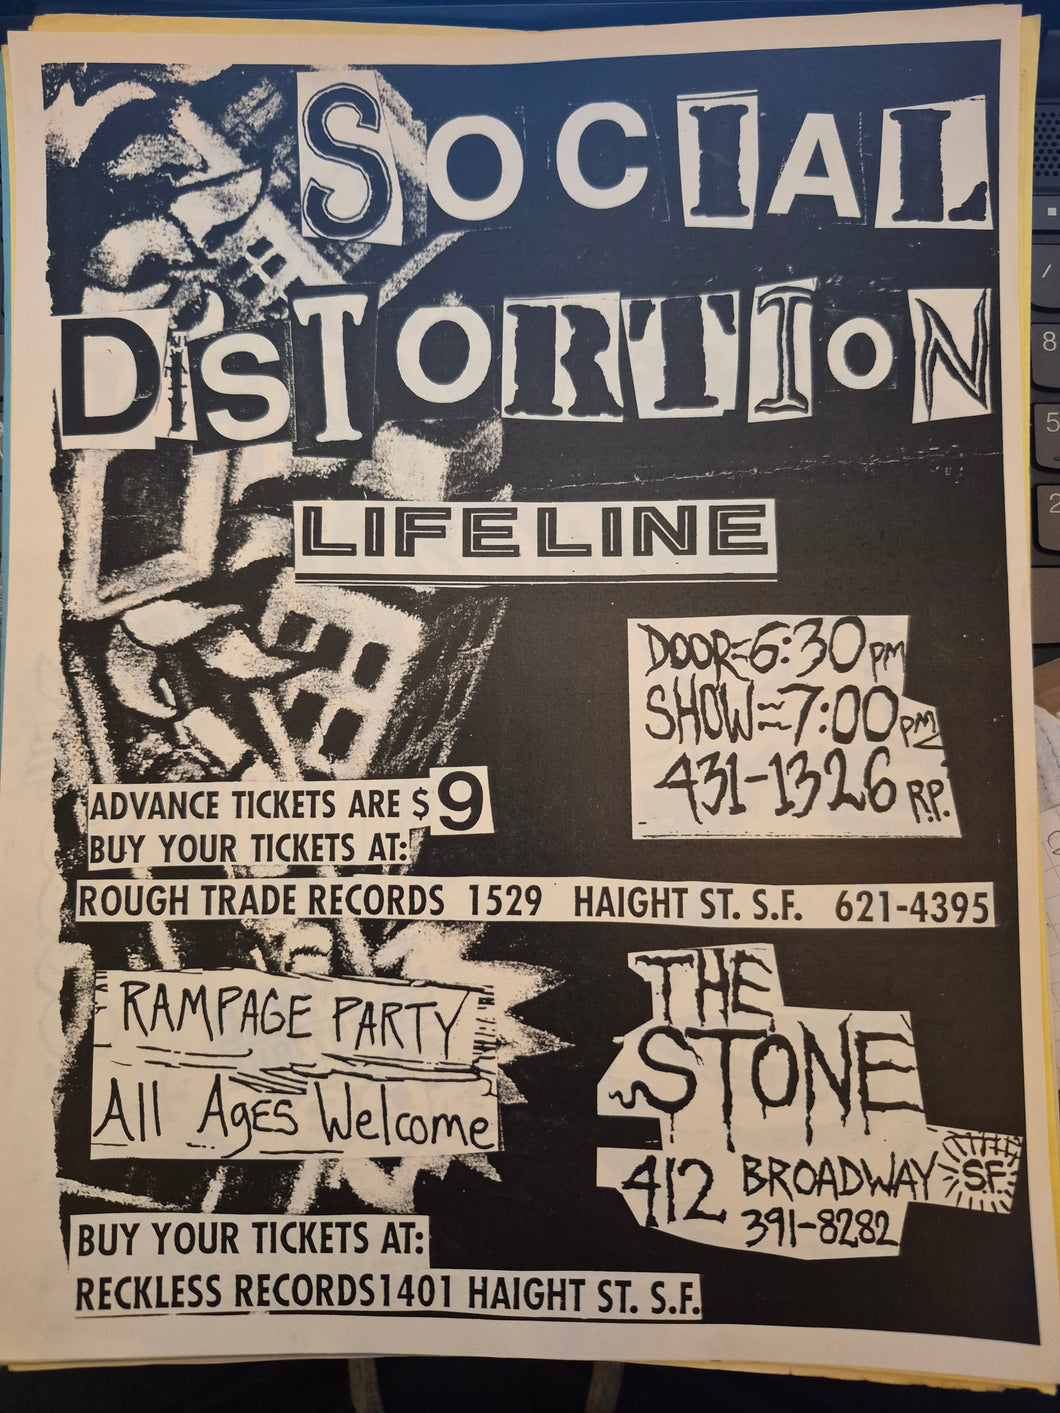 SOCIAL
DiSTORTIoN
LIFELINE
DOOR=6:30 PM
SHOW=7:00 PM
431-1326 R.P.
ADVANCE TICKETS ARE $9
BUY YOUR TICKETS AT:
ROUGH TRADE RECORDS 1529 HAIGHT ST. S.F. 621-4395
RAMPAGE PARTY
All Ages Welcome
THE
STONE
412 BROADWAY S.F.
391-8282
BUY YOUR TICKETS AT:
RECKLESS RECORDS 1401 HAIGHT ST. S.F.